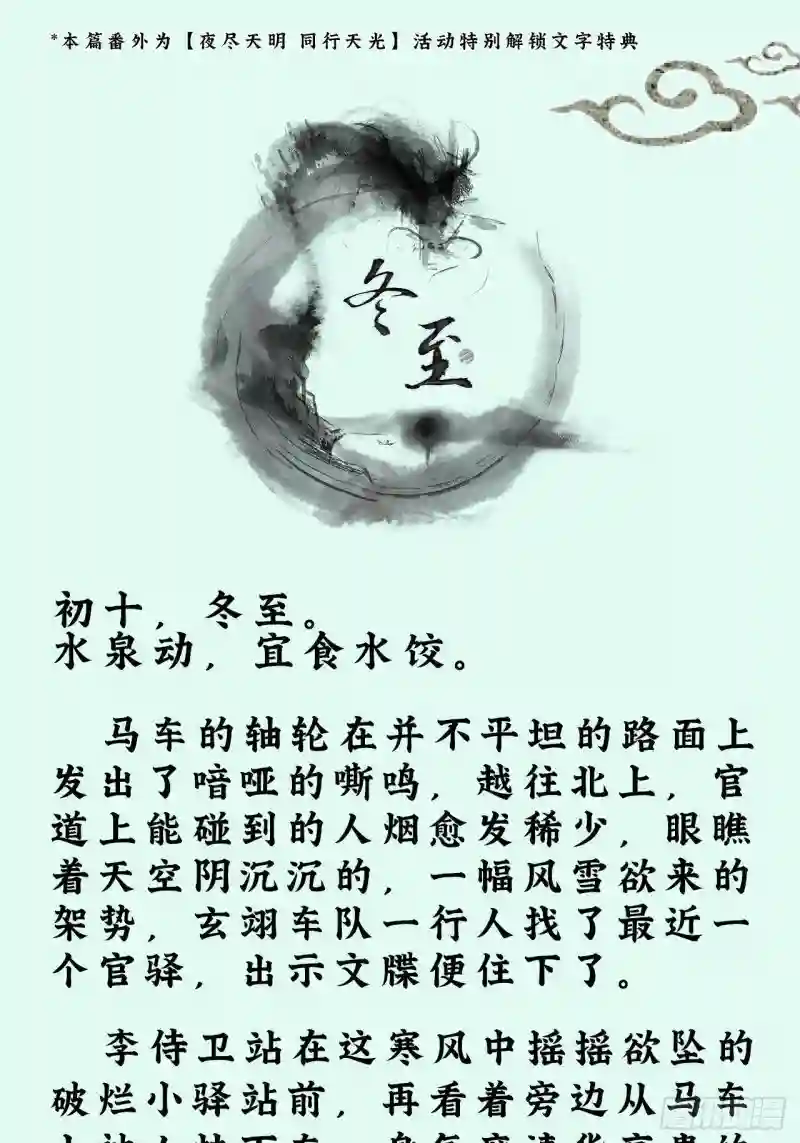 *本篇番外为【夜尽天明 同行天光】活动特别解锁文字特典
冬
至
初十，冬至。
水泉动，宜食水饺。
马车的轴轮在并不平坦的路面上
发出了喑哑的嘶鸣，越往北上，官
道上能碰到的人烟愈发稀少，眼瞧
着天空阴沉沉的，一幅风雪欲来的
架势，玄翊车队一行人找了最近一
个官驿，出示文牒便住下了。
李侍卫站在这寒风中摇摇欲坠的
破烂小驿站前，再看着旁边从马车